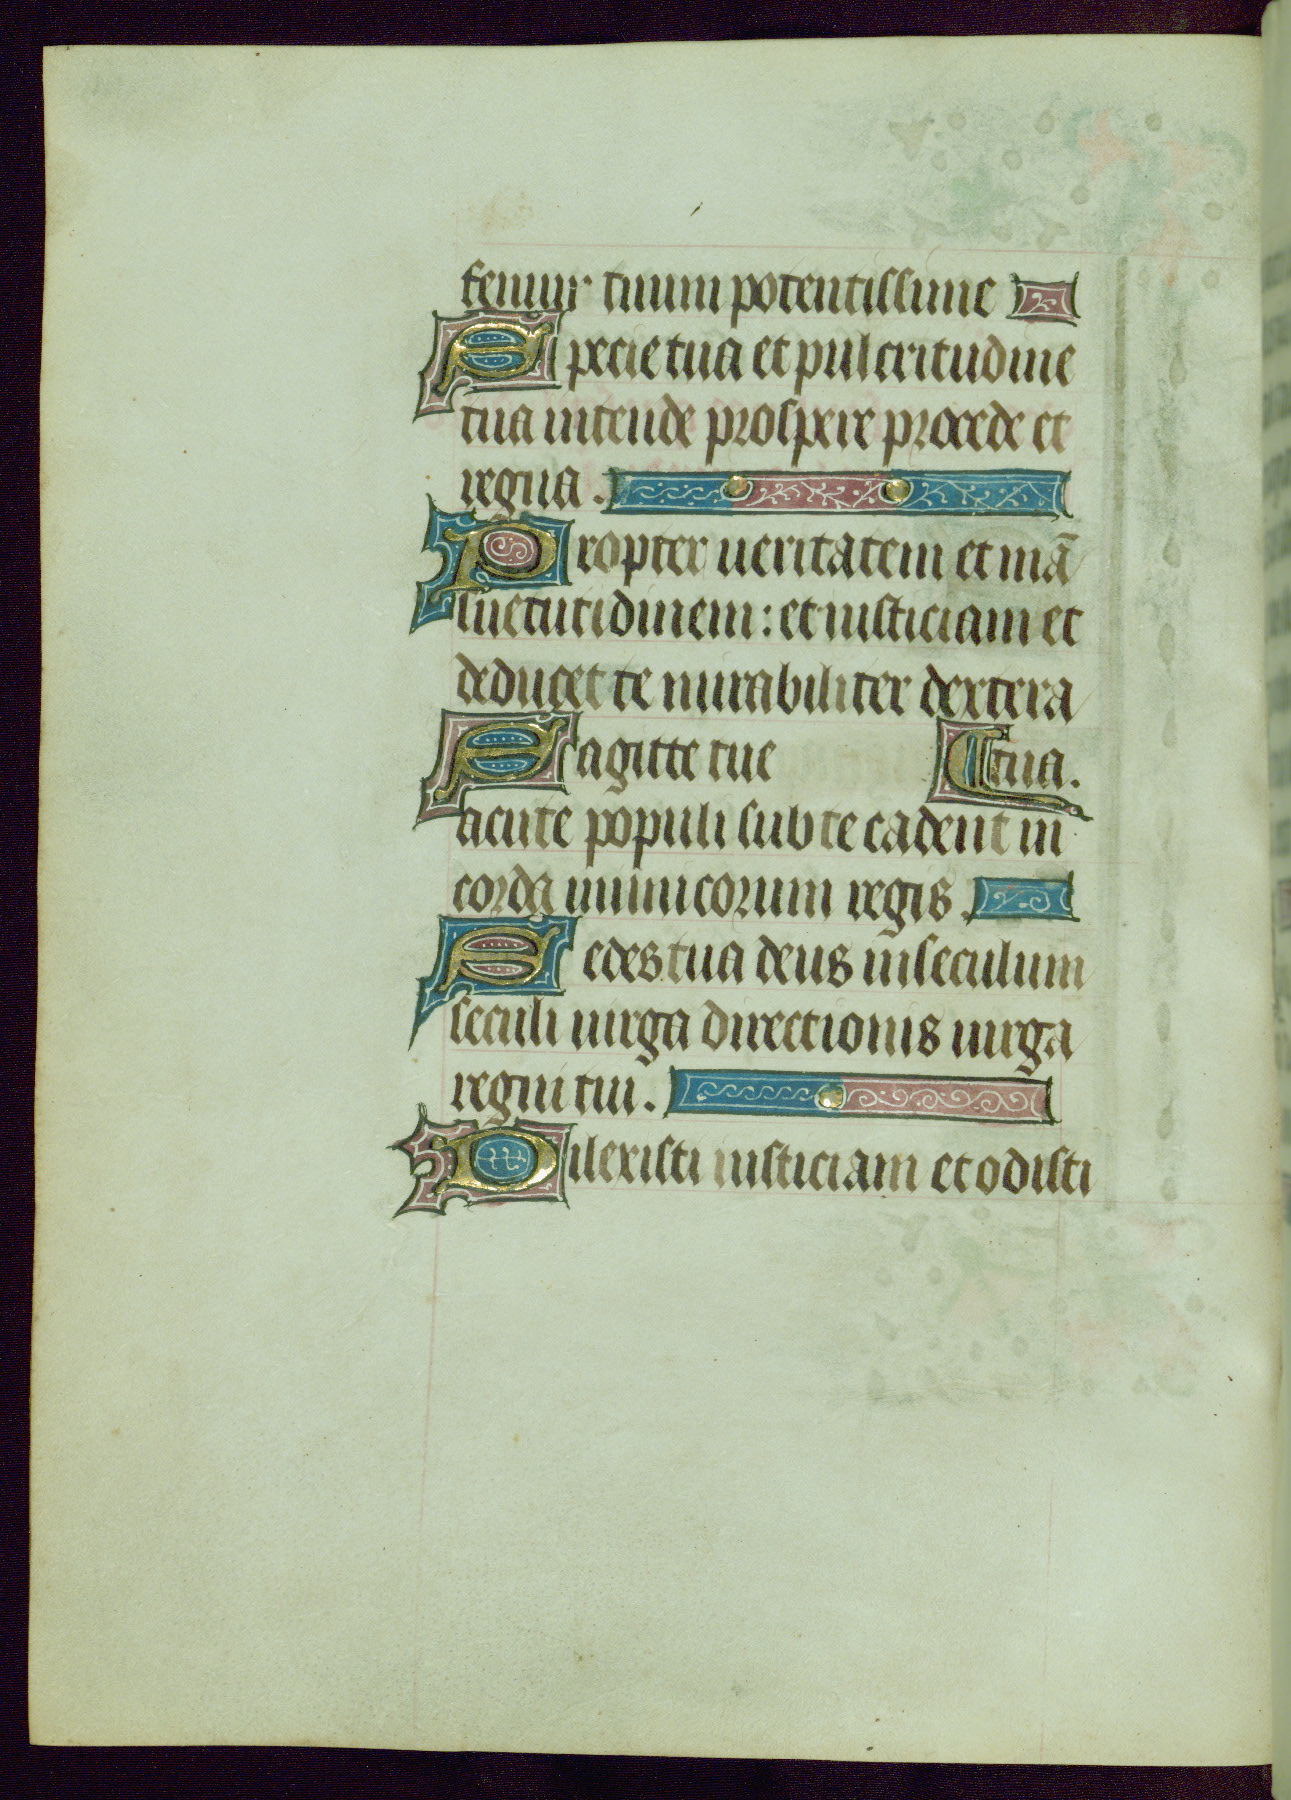 femur tuum potentissime
Specie tua et pulcritudine
tua intende prospere procede et
regna.
Propter ueritatem et mā
suetutidinem: et iusticiam et
deducet te mirabiliter dextera
Sagitte tue tua.
acute populi sub te cadent in
corda inimicorum regis.
Sedes tua deus in seculum
seculi uirga directionis uirga
regni tui.
Dilexisti iusticiam et odisti